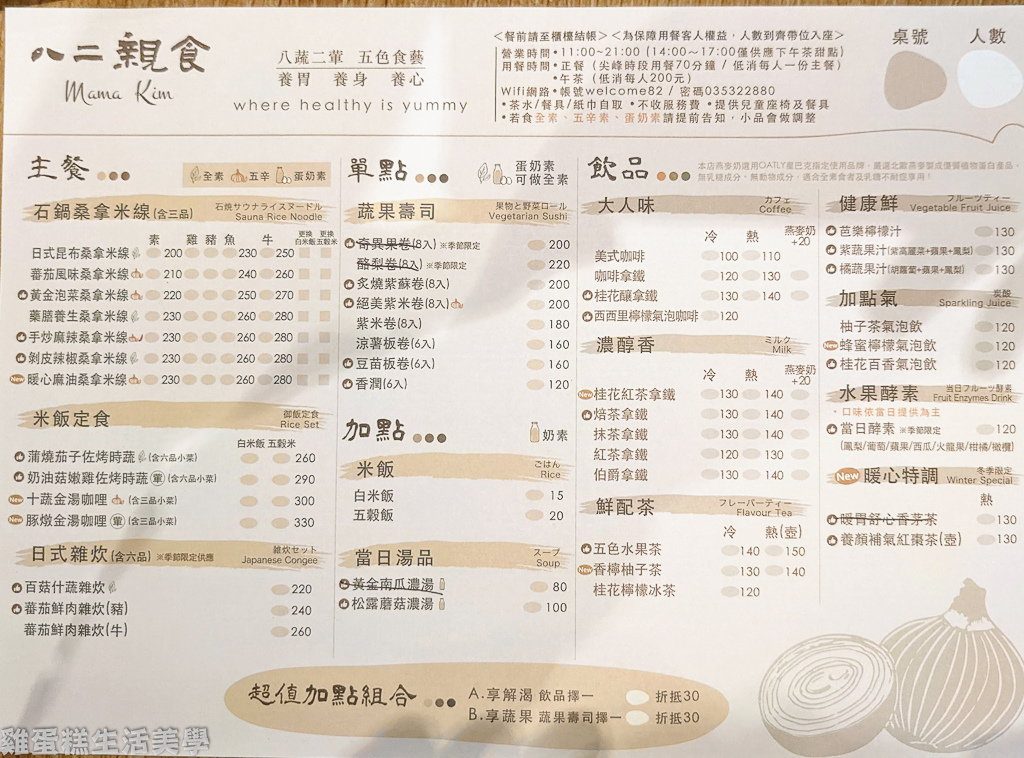 八二親食
Mama Kim
八蔬二葷 五色食藝
養胃 養身 養心
where healthy is yummy
<餐前請至櫃檯結帳> <為保障用餐客人權益，人數到齊帶位入座>
營業時間•11:00~21:00 (14:00~17:00僅供應下午茶甜點)
用餐時間•正餐 (尖峰時段用餐70分鐘 / 低消每人一份主餐)
•午茶 (低消每人200元)
Wifi網路•帳號welcome82 / 密碼035322880
•茶水/餐具/紙巾自取 •不收服務費 •提供兒童座椅及餐具
•若食全素、五辛素、蛋奶素請提前告知，小品會做調整
桌號 人數
主餐
全素 五辛 蛋奶素
石鍋桑拿米線(含三品) 石焼サウナライスヌードル
Sauna Rice Noodle
素 雞 豬 魚 牛 更換白米飯 更換五穀米
日式昆布桑拿米線 200 230 250
蕃茄風味桑拿米線 210 240 260
黃金泡菜桑拿米線 220 250 270
藥膳養生桑拿米線 230 260 280
手炒麻辣桑拿米線 230 260 280
剝皮辣椒桑拿米線 230 260 280
New 暖心麻油桑拿米線 230 260 280
米飯定食 御飯定食
Rice Set
白米飯 五穀米
蒲燒茄子佐烤時蔬 (含六品小菜) 260
奶油菇嫩雞佐烤時蔬 單 (含六品小菜) 290
New 十蔬金湯咖哩 (含三品小菜) 300
New 豚燉金湯咖哩 單 (含三品小菜) 330
日式雜炊(含六品) ※季節限定供應 雜炊セット
Japanese Congee
百菇什蔬雜炊 220
蕃茄鮮肉雜炊(豬) 240
蕃茄鮮肉雜炊(牛) 260
單點 蛋奶素
可做全素
蔬果壽司 果物と野菜ロール
Vegetarian Sushi
奇異果卷(8入) ※季節限定 200
酪梨卷(8入) ※季節限定 220
炙燒紫蘇卷(8入) 200
絕美紫米卷(8入) 200
紫米卷(8入) 180
涼薯板卷(6入) 160
豆苗板卷(6入) 160
香潤(6入) 120
加點 奶素
米飯 ごはん
Rice
白米飯 15
五穀飯 20
當日湯品 スープ
Soup
黃金南瓜濃湯 80
松露蘑菇濃湯 100
飲品
本店燕麥奶選用OATLY星巴克指定使用品牌，嚴選北歐燕麥製成優質植物蛋白產品，
無乳糖成分、無動物成分，適合全素食者及乳糖不耐症享用！
大人味 カフェ
Coffee
冷 熱 燕麥奶+20
美式咖啡 100 110
咖啡拿鐵 120 130
桂花釀拿鐵 130 140
西西里檸檬氣泡咖啡 120
濃醇香 ミルク
Milk
冷 熱 燕麥奶+20
New 桂花紅茶拿鐵 130 140
焙茶拿鐵 130 140
抹茶拿鐵 130 140
紅茶拿鐵 120 130
伯爵拿鐵 130 140
鮮配茶 フレーバーティー
Flavour Tea
冷 熱(壺)
五色水果茶 140 150
New 香檸柚子茶 130 140
桂花檸檬冰茶 120
健康鮮 フルーツティー
Vegetable Fruit Juice
芭樂檸檬汁 130
紫蔬果汁(紫高麗菜+蘋果+鳳梨) 130
橘蔬果汁(胡蘿蔔+蘋果+鳳梨) 130
加點氣 炭酸
Sparkling Juice
柚子茶氣泡飲 120
New 蜂蜜檸檬氣泡飲 120
桂花百香氣泡飲 120
水果酵素 当日フルーツ酵素
Fruit Enzymes Drink
•口味依當日提供為主
當日酵素 ※季節限定 120
(鳳梨/葡萄/蘋果/西瓜/火龍果/柑橘/橄欖)
New 暖心特調 冬季限定
Winter Special
熱
暖胃舒心香茅茶 130
養顏補氣紅棗茶(壺) 130
超值加點組合
A.享解渴 飲品擇一 折抵30
B.享蔬果 蔬果壽司擇一 折抵30
雞蛋糕生活美學